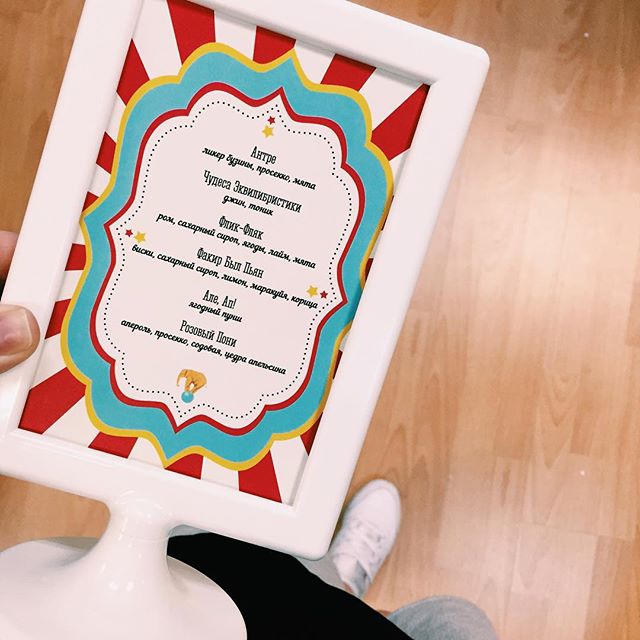 Антре
ликер бузины, просекко, мята
Чудеса Эквилибристики
джин, тоник
Флик-Фляк
ром, сахарный сироп, ягоды, лайм, мята
Факир Был Пьян
виски, сахарный сироп, лимон, маракуйя, корица
Але, Ап!
ягодный пунш
Розовый Пони
апероль, просекко, содовая, цедра апельсина